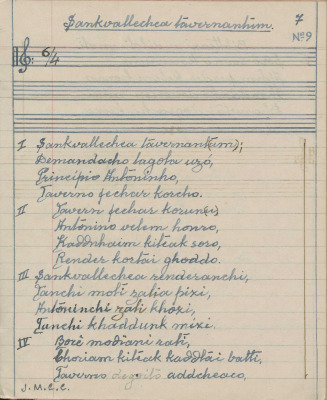 Sankvallechea tavernantum.
7
Nº9
6/4
I Sankvallechea tavernant(um);
Demandacho lagota uzó,
Principio Antoninho,
Taverno fechar korcho.
II Tavern fechar korun(u)
Antonino velem honro,
Kaddnhaim kiteak soro,
Render kortai ghoddo.
III Sankvallechea renderanchi,
Tanchi moti zalia pizi,
Antoninchi zali khozi,
Tanchi khaddunk mixi.
IV Borê modrani rati,
Choriam kiteak kaddtai batti,
Taverno degoito addcheaco,
J.M.C.C.